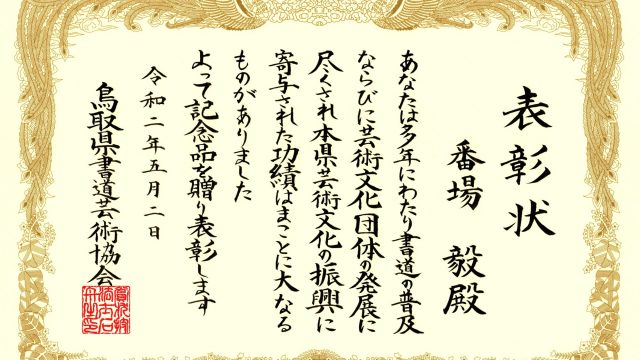 表彰状
番場 毅殿
あなたは多年にわたり書道の普及
ならびに芸術文化団体の発展に
尽くされ本県芸術文化の振興に
寄与された功績はまことに大なる
ものがありました
よって記念品を贈り表彰します
令和二年五月二日
鳥取県書道芸術協会